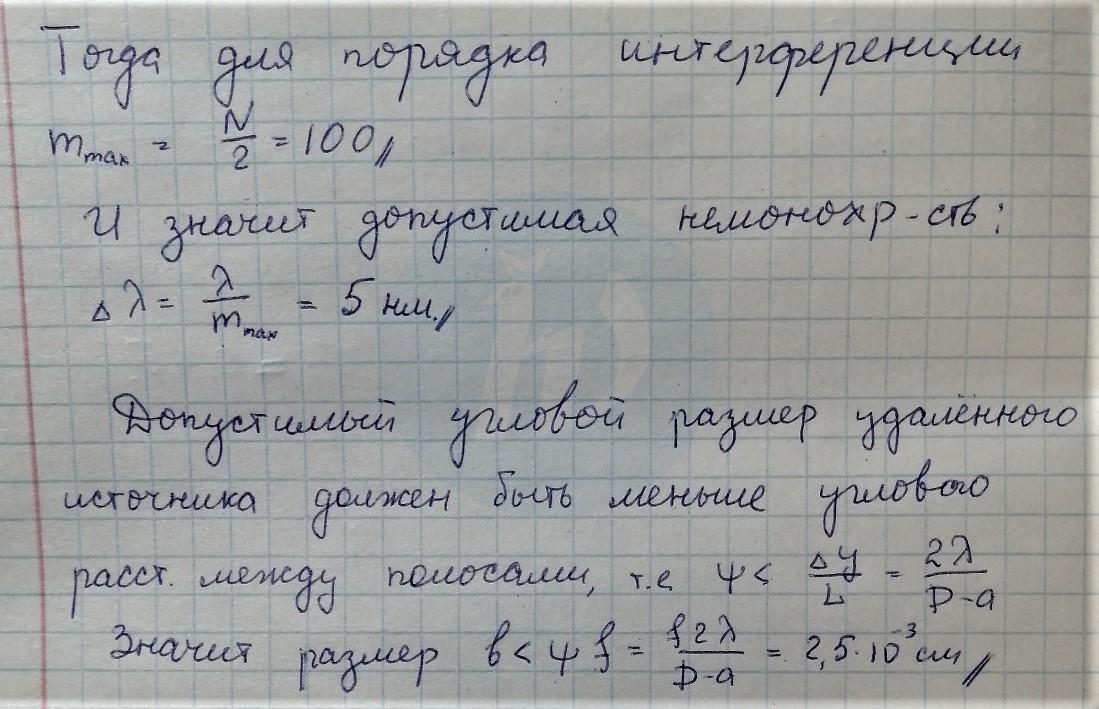 Тогда для порядка интерференции
m_max = N/2 = 100//
И значит допустимая немонохр-сть:
Δλ = λ/m_max = 5 нм.//
Допустимый угловой размер удалённого
источника должен быть меньше углового
расст. между полосами, т.е ψ < Δy/L = 2λ/D-a
Значит размер b < ψ f = f2λ/D-a = 2,5·10⁻³ см//